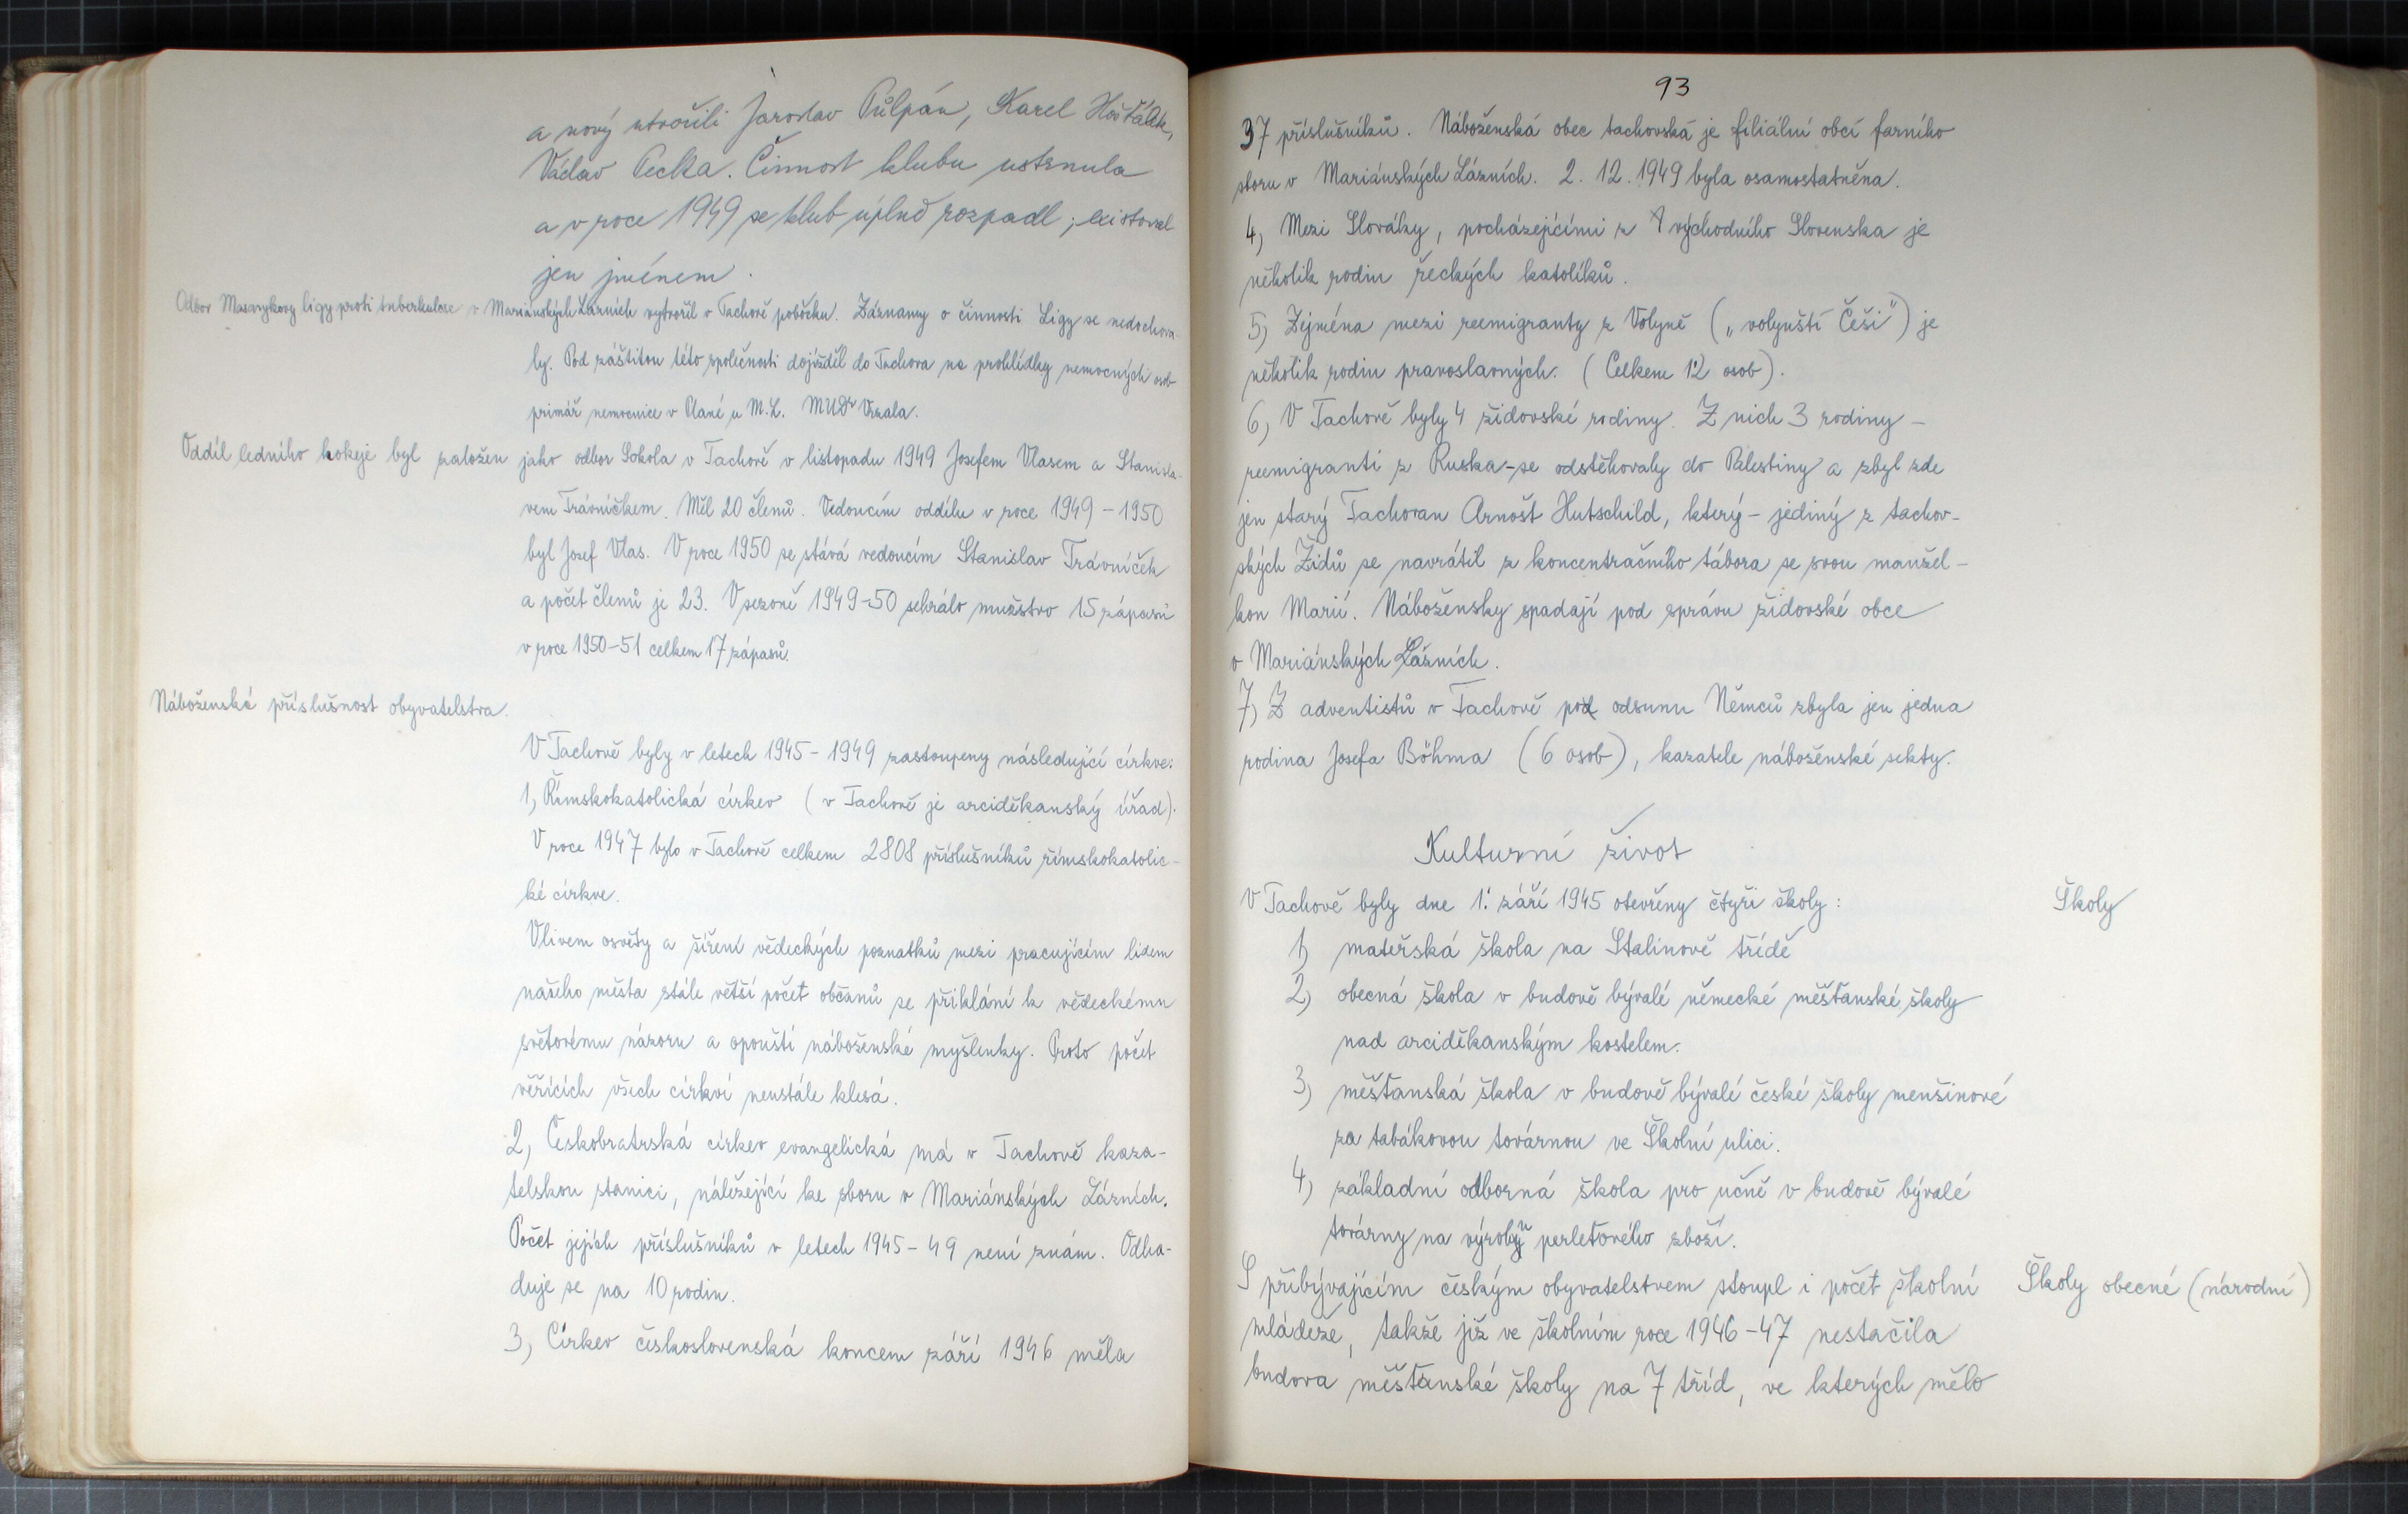 a nový utvořili Jaroslav Půlpán, Karel Hošťálek,
Václav Pecka. Činnost klubu ustrnula
a v roce 1949 se klub úplně rozpadl; existoval
jen jménem.
Odbor Masarykovy ligy proti tuberkulose v Mariánských Lázních vytvořil v Tachově pobočku. Záznamy o činnosti Ligy se nedochova-
ly. Pod záštitou této společnosti dojížděl do Tachova na prohlídky nemocných osob
primář nemocnice v Plané u M.L. MUDr Vrzala.
Oddíl ledního hokeje byl založen jako odbor Sokola v Tachově v listopadu 1949 Josefem Vlasem a Stanisla-
vem Trávníčkem. Měl 20 členů. Vedoucím oddílu v roce 1949-1950
byl Josef Vlas. V roce 1950 se stává vedoucím Stanislav Trávníček
a počet členů je 23. V sezoně 1949-50 sehrálo mužstvo 15 zápasů
v roce 1950-51 celkem 17 zápasů.
Náboženská příslušnost obyvatelstva.
V Tachově byly v letech 1945-1949 zastoupeny následující církve:
1, Římskokatolická církev (v Tachově je arciděkanský úřad).
V roce 1947 bylo v Tachově celkem 2808 příslušníků římskokatolic-
ké církve.
Vlivem osvěty a šíření vědeckých poznatků mezi pracujícím lidem
našeho města stále větší počet občanů se přiklání k vědeckému
světovému názoru a opouští náboženské myšlenky. Proto počet
věřících všech církví neustále klesá.
2, Českobratrská církev evangelická má v Tachově kaza-
telskou stanici, náležející ke sboru v Mariánských Lázních.
Počet jejích příslušníků v letech 1945-49 není znám. Odha-
duje se na 10 rodin.
3, Církev československá koncem září 1946 měla
93
37 příslušníků. Náboženská obec tachovská je filiální obcí farního
sboru v Mariánských Lázních. 2. 12. 1949 byla osamostatněna.
4, Mezi Slováky, pocházejícími z východního Slovenska je
několik rodin řeckých katolíků.
5, Zejména mezi reemigranty z Volyně („volyňští Češi") je
několik rodin pravoslavných. (Celkem 12 osob).
6, V Tachově byly 4 židovské rodiny. Z nich 3 rodiny -
reemigranti z Ruska - se odstěhovaly do Palestiny a zbyl zde
jen starý Tachovan Arnošt Hutschild, který - jediný z tachov-
ských Židů se navrátil z koncentračního tábora se svou manžel-
kou Marií. Nábožensky spadají pod správu židovské obce
v Mariánských Lázních.
7, Z adventistů v Tachově po odsunu Němců zbyla jen jedna
rodina Josefa Böhma (6 osob), kazatele náboženské sekty.
Kulturní život
V Tachově byly dne 1. září 1945 otevřeny čtyři školy:
Školy
1) mateřská škola na Stalinově třídě
2) obecná škola v budově bývalé německé měšťanské školy
nad arciděkanským kostelem.
3) měšťanská škola v budově bývalé české školy menšinové
za tabákovou továrnou ve Školní ulici.
4) základní odborná škola pro učně v budově bývalé
továrny na výrobu perleťového zboží.
S přibývajícím českým obyvatelstvem stoupl i počet školní
Školy obecné (národní)
mládeže, takže již ve školním roce 1946-47 nestačila
budova měšťanské školy na 7 tříd, ve kterých mělo